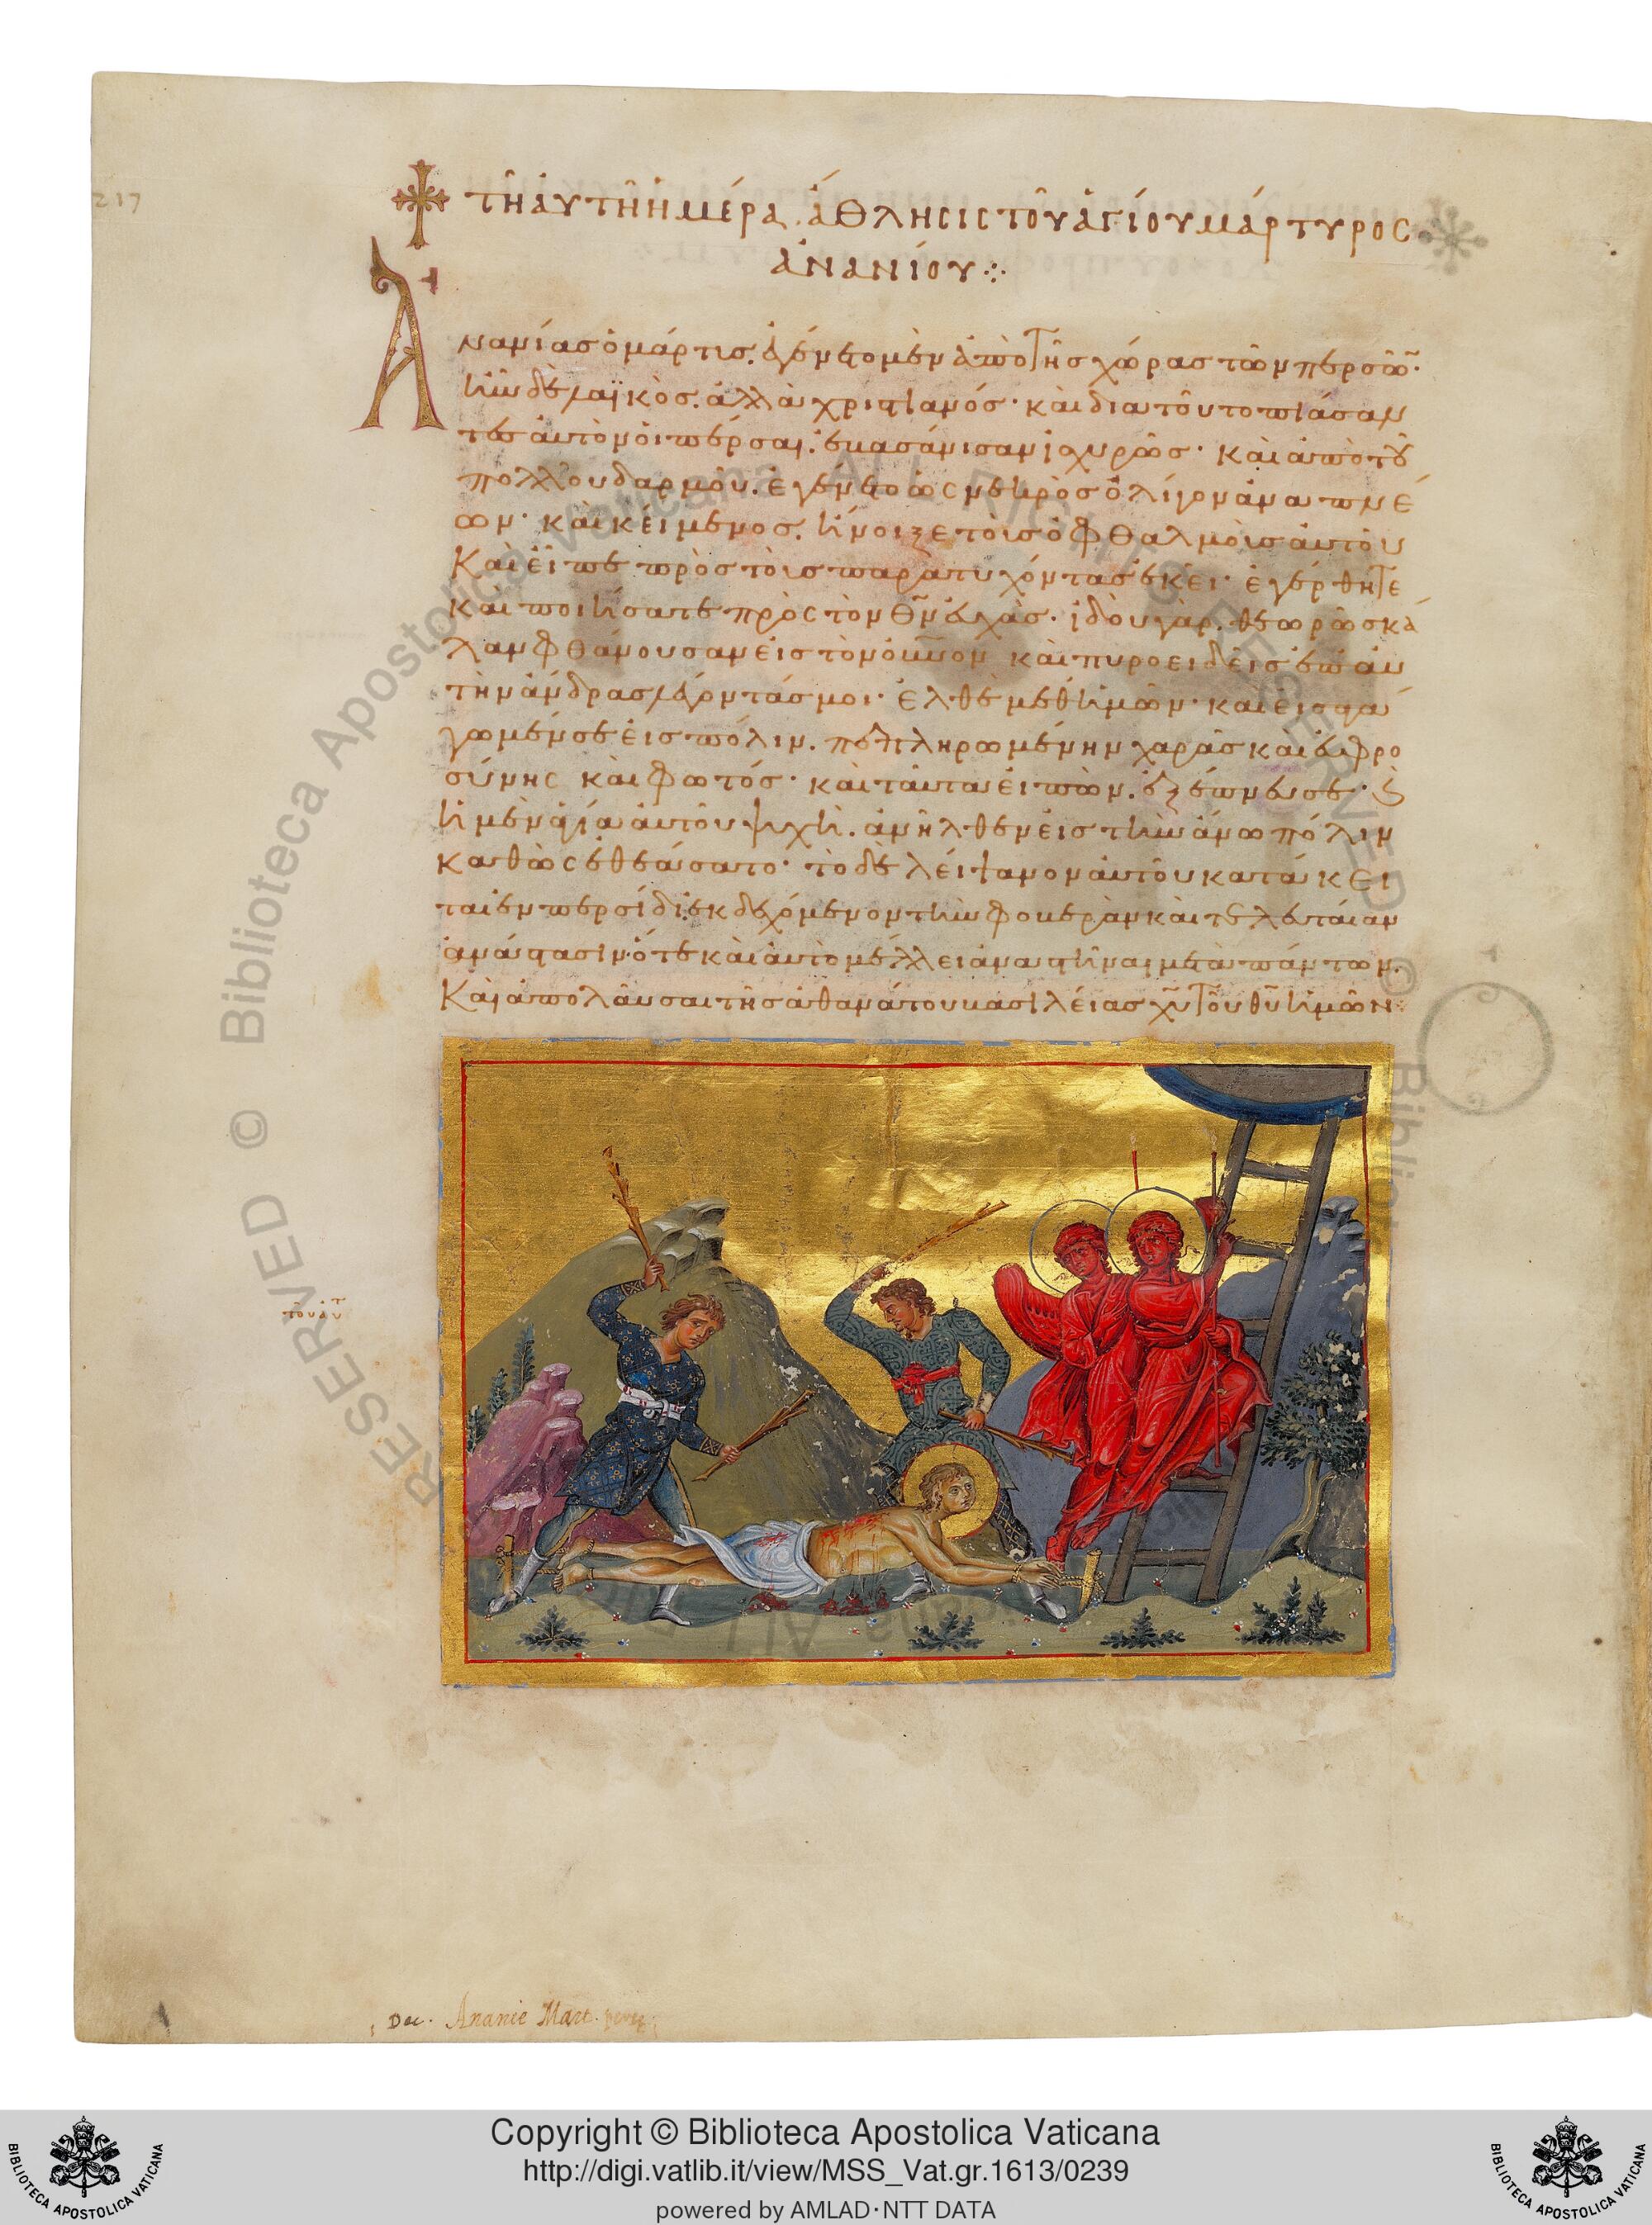 217
τῆ αὐτῆ ἡμέρα. ἄθλησις τοῦ ἁγίου μάρτυρος
ἀνανίου
Ἀ
νανίας ὁ μάρτις. ἐγένετο μὲν ἀπὸ τῆς χώρας τῶν περσῶν·
ἦν δὲ λαϊκὸς. ἀλλὰ χριστιανός· καὶ δια τοῦτο πιάσαν
τες αὐτὸν ὁι πέρσαι. ἐβασάνισαν ἰσχυρῶς· καὶ ἀπὸ τοῦ
πολλοῦ δαρμοῦ. ἐγένετο ὡς νεκρὸς ὀλίγον ἀναπνέ
ων· καὶ κείμενος. ἤνοιξε τοὺς ὀφθαλμοὺς αὐτοῦ
Καὶ εἶπε πρὸς τοὺς παρατυχόντας ἐκεῖ· ἐγέρθητε
καὶ ποιήσατε πρὸς τὸν θν εὐχὰς· ἰδοὺ γὰρ. θεωρῶ σκά
λαν φθάνουσαν εἰς τὸν οὐνον καὶ πυροειδεῖς ἐπ αὐ
τὴν ἄνδρας λέγοντάς μοι· ἐλθὲ μεθ ἡμῶν· καὶ εἰσάγω
γωμέν σε εἰς πόλιν. πεπληρωμένην χαρᾶς καὶ εὐφρο
σύνης καὶ φωτός· καὶ ταῦτα εἰπὼν. ἐξέπνευσε· καὶ
ἡ μὲν ἁγία αὐτοῦ ψυχὴ. ἀνῆλθεν εἰς τὴν ἄνω πόλιν
καθὼς ἐθεάσατο· τὸ δὲ λείψανον αὐτοῦ κατάκει
ται ἐν περσίδι ἐκδεχόμενον τὴν φοβερὰν καὶ τελευταίαν
ἀνάστασιν. ὅτε καὶ αὐτὸ μέλλει ἀναστῆναι μετὰ πάντων.
Καὶ ἀπολαῦσαι τῆς ἀθανάτου βασιλείας χυ τοῦ θυ ἡμῶν
Dec. Ananie Mart.
Copyright © Biblioteca Apostolica Vaticana
http://digi.vatlib.it/view/MSS_Vat.gr.1613/0239
powered by AMLAD·NTT DATA
BIBLIOTECA APOSTOLICA VATICANA
BIBLIOTECA APOSTOLICA VATICANA
Biblioteca Apostolica Vaticana ALL RIGHTS RESERVED ©